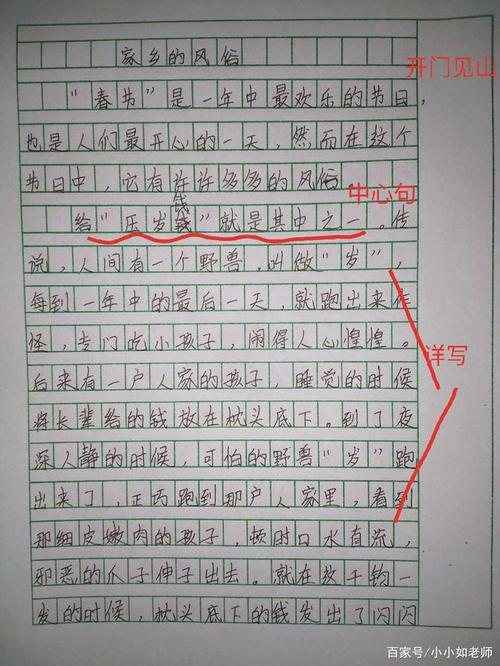 家乡的风俗
开门见山
“春节”是一年中最欢乐的节日,
也是人们最开心的一天,然而在这个
节日中,它有许许多多的风俗。
中心句
给“压岁钱”就是其中之一。传
说,人间有一个野兽,叫做“岁”,
每到一年中的最后一天,就跑出来作
怪,专门吃小孩子,闹得人心惶惶。
详写
后来有一户人家的孩子,睡觉的时候
将长辈给的钱放在枕头底下。到了夜
深人静的时候,可怕的野兽“岁”跑
出来了,正巧跑到那户人家里,看到
那细皮嫩肉的孩子,顿时口水直流,
邪恶的爪子伸了出去。就在这千钧一
发的时候,枕头底下的钱发出了闪闪
百家号/小小如老师